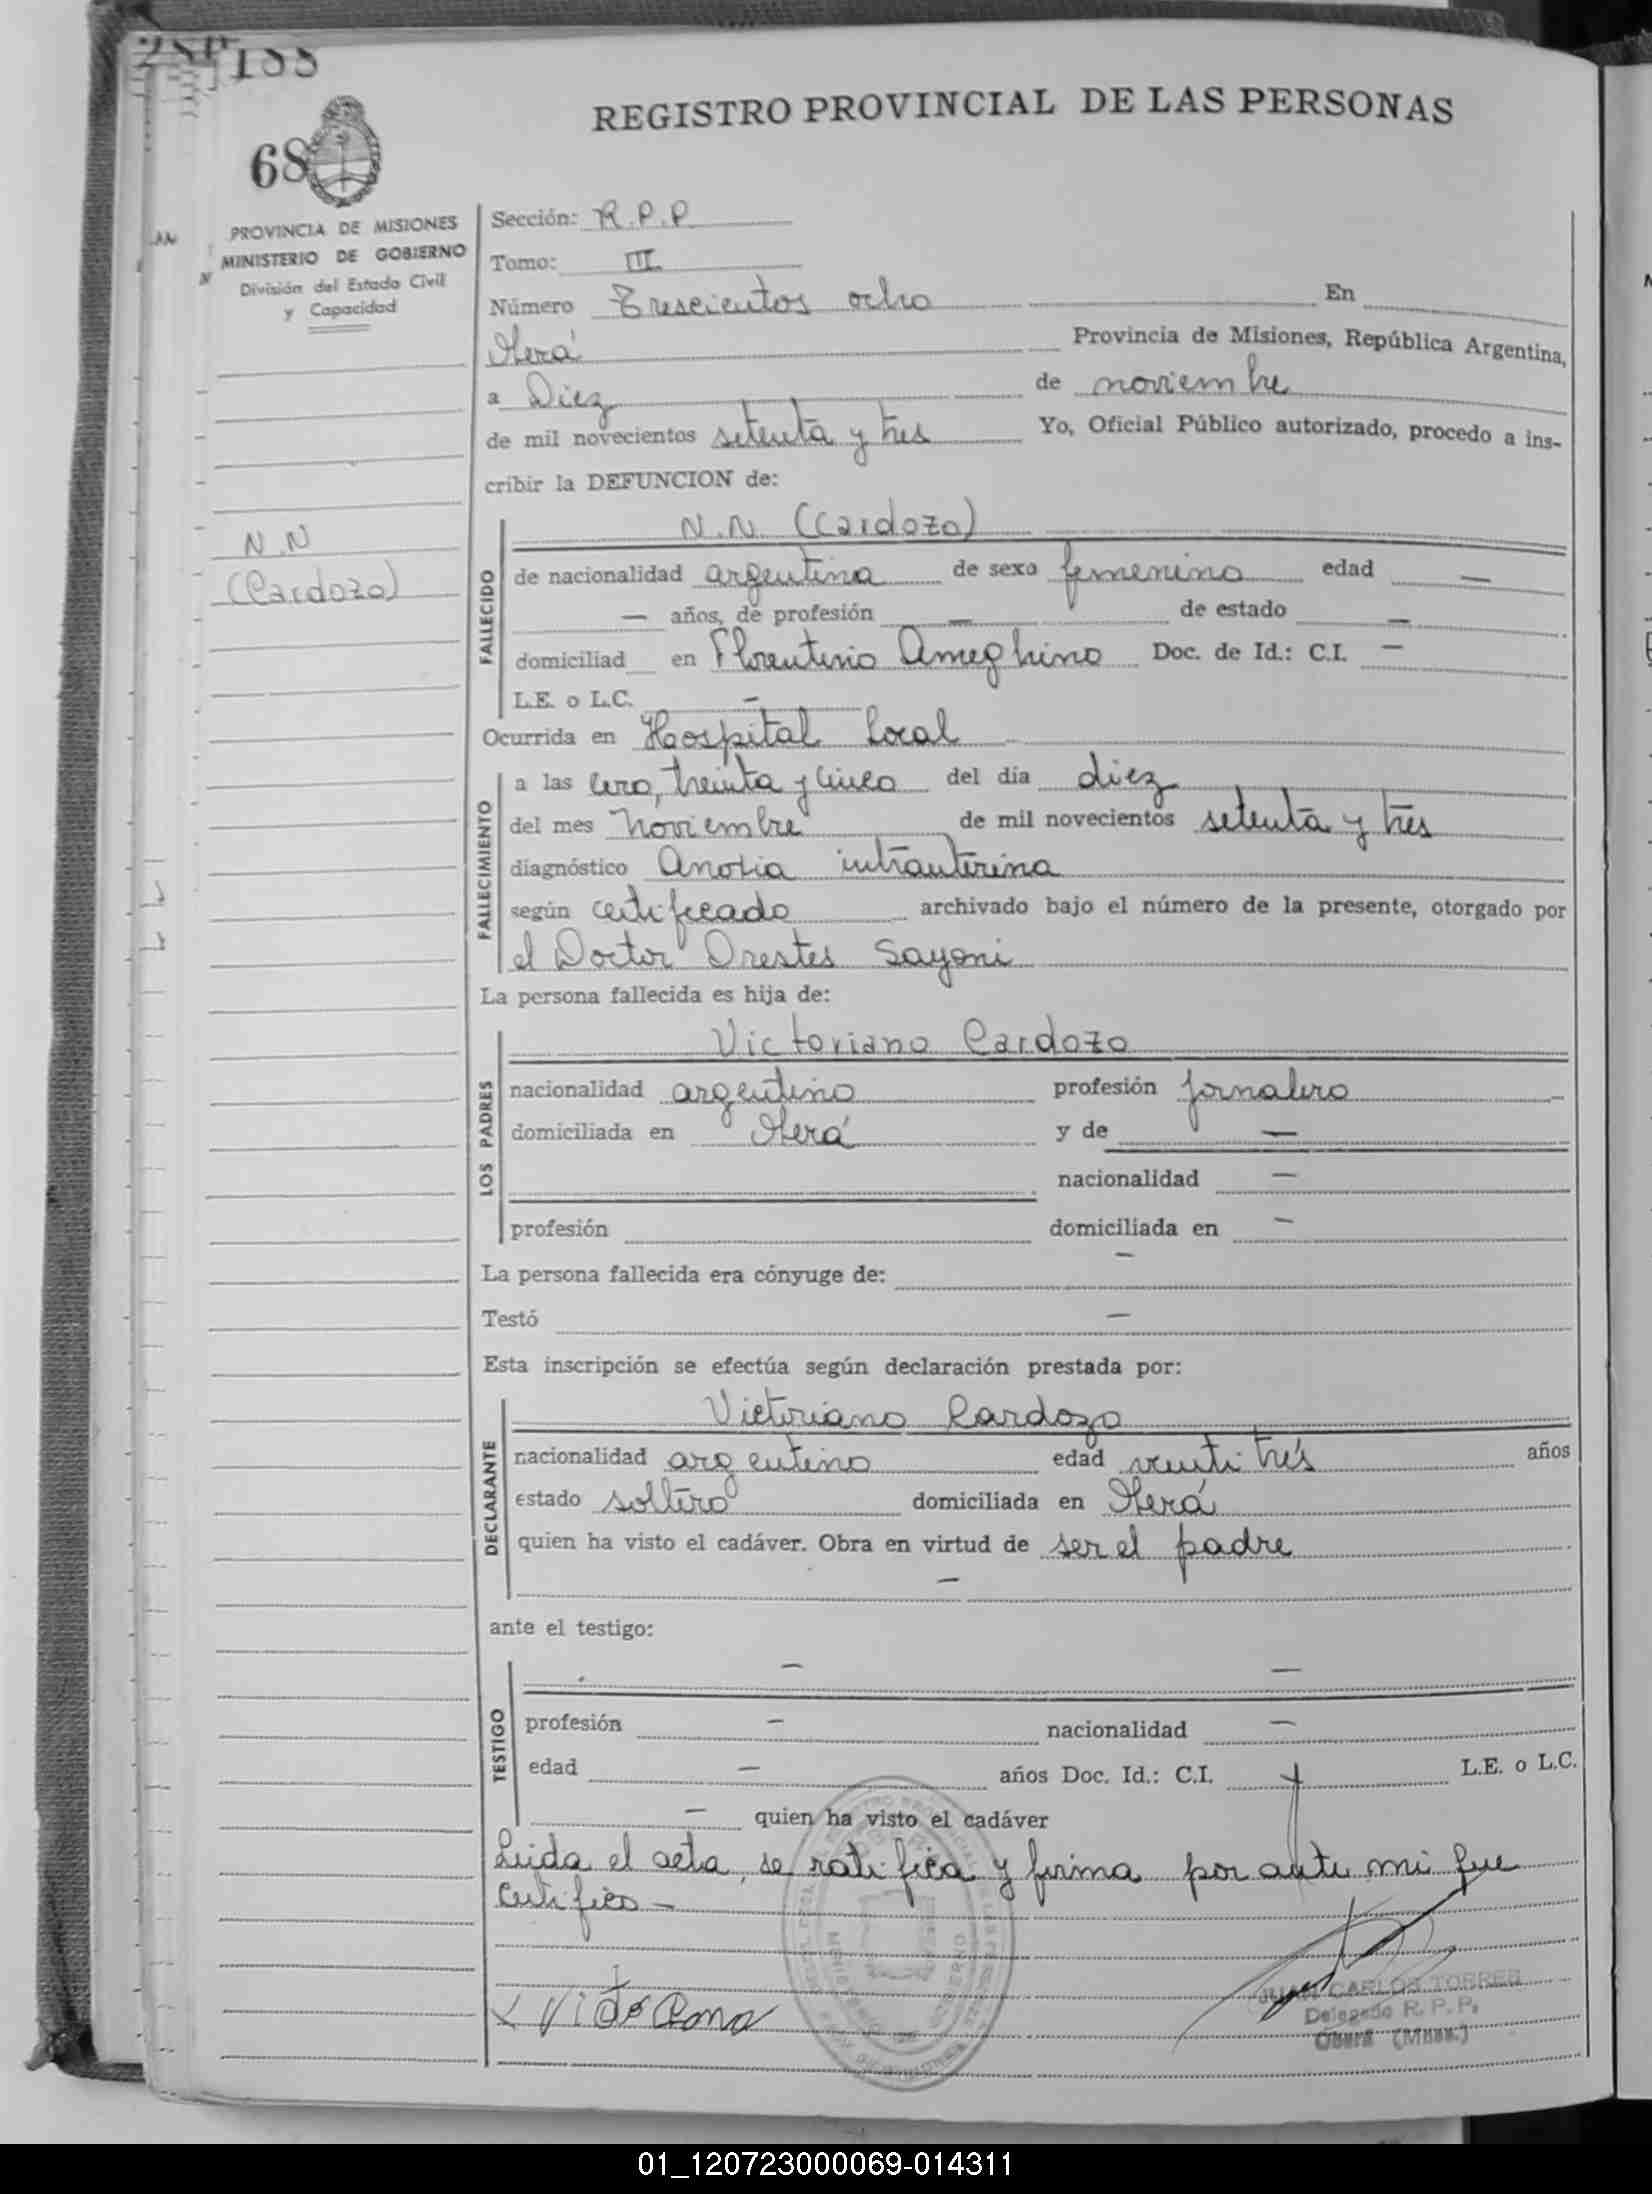 188
REGISTRO PROVINCIAL DE LAS PERSONAS
68
PROVINCIA DE MISIONES
MINISTERIO DE GOBIERNO
División del Estado Civil
y Capacidad
Sección: R.P.P.
Tomo: III
Número Trescientos ocho En
Oberá Provincia de Misiones, República Argentina,
a Diez de noviembre
de mil novecientos setenta y tres Yo, Oficial Público autorizado, procedo a ins-
cribir la DEFUNCION de:
N.N
(Cardozo)
FALLECIDO
N.N. (Cardozo)
de nacionalidad argentina de sexo femenino edad —
— años, de profesión — de estado —
domiciliad en Florentino Ameghino Doc. de Id.: C.I. —
L.E. o L.C. —
Ocurrida en Hospital Local
FALLECIMIENTO
a las cero, treinta y cinco del día diez
del mes noviembre de mil novecientos setenta y tres
diagnóstico Anoxia intrauterina
según certificado archivado bajo el número de la presente, otorgado por
el Doctor Orestes
La persona fallecida es hija de:
LOS PADRES
Victoriano Cardozo
nacionalidad argentino profesión jornalero
domiciliada en Oberá y de —
nacionalidad —
profesión domiciliada en —
La persona fallecida era cónyuge de: —
Testó —
Esta inscripción se efectúa según declaración prestada por:
DECLARANTE
Victoriano Cardozo
nacionalidad argentino edad veinti trés años
estado soltero domiciliada en Oberá
quien ha visto el cadáver. Obra en virtud de ser el padre
—
ante el testigo:
TESTIGO
— —
profesión — nacionalidad —
edad — años Doc. Id.: C.I. L.E. o L.C.
— quien ha visto el cadáver
Leida el acta, se ratifica y firma por ante mi que
Certifico —
JUAN CARLOS TORRES
Delegado R.P.P.
Oberá (Mnes.)
01_120723000069-014311